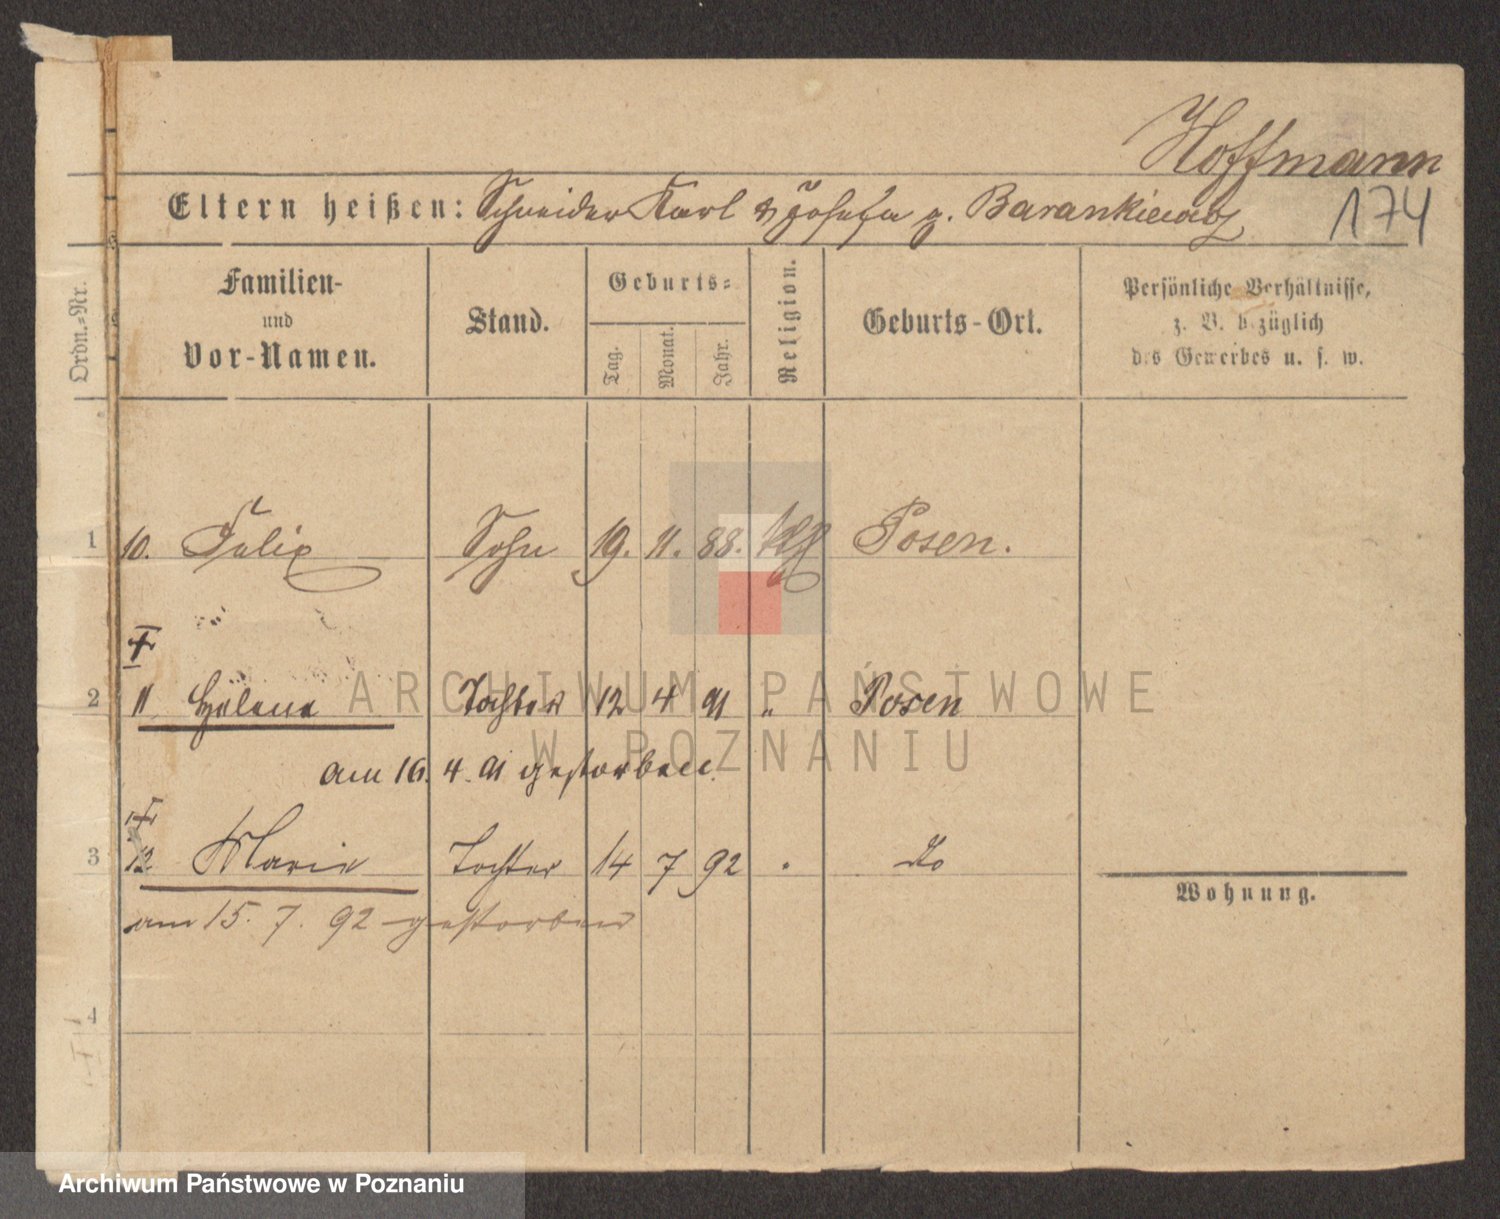 Hoffmann
174
Eltern heißen: Schneider Karl & Josefa g. Barankiewicz
Ordn.-Nr.
Familien-
und
Vor-Namen.
Stand.
Geburts-
Tag.
Monat.
Jahr.
Religion.
Geburts-Ort.
Persönliche Verhältnisse,
z. B. bezüglich
des Gewerbes u. s. w.
1 10. Felix Sohn 19. 11. 88. Posen.
2 11 Helene Tochter 12 4 91 " Posen
am 16. 4. 91 gestorben.
3 12. Marie Tochter 14 7 92 " do
am 15. 7. 92 gestorben
Wohnung.
4
ARCHIWUM PAŃSTWOWE
W POZNANIU
Archiwum Państwowe w Poznaniu